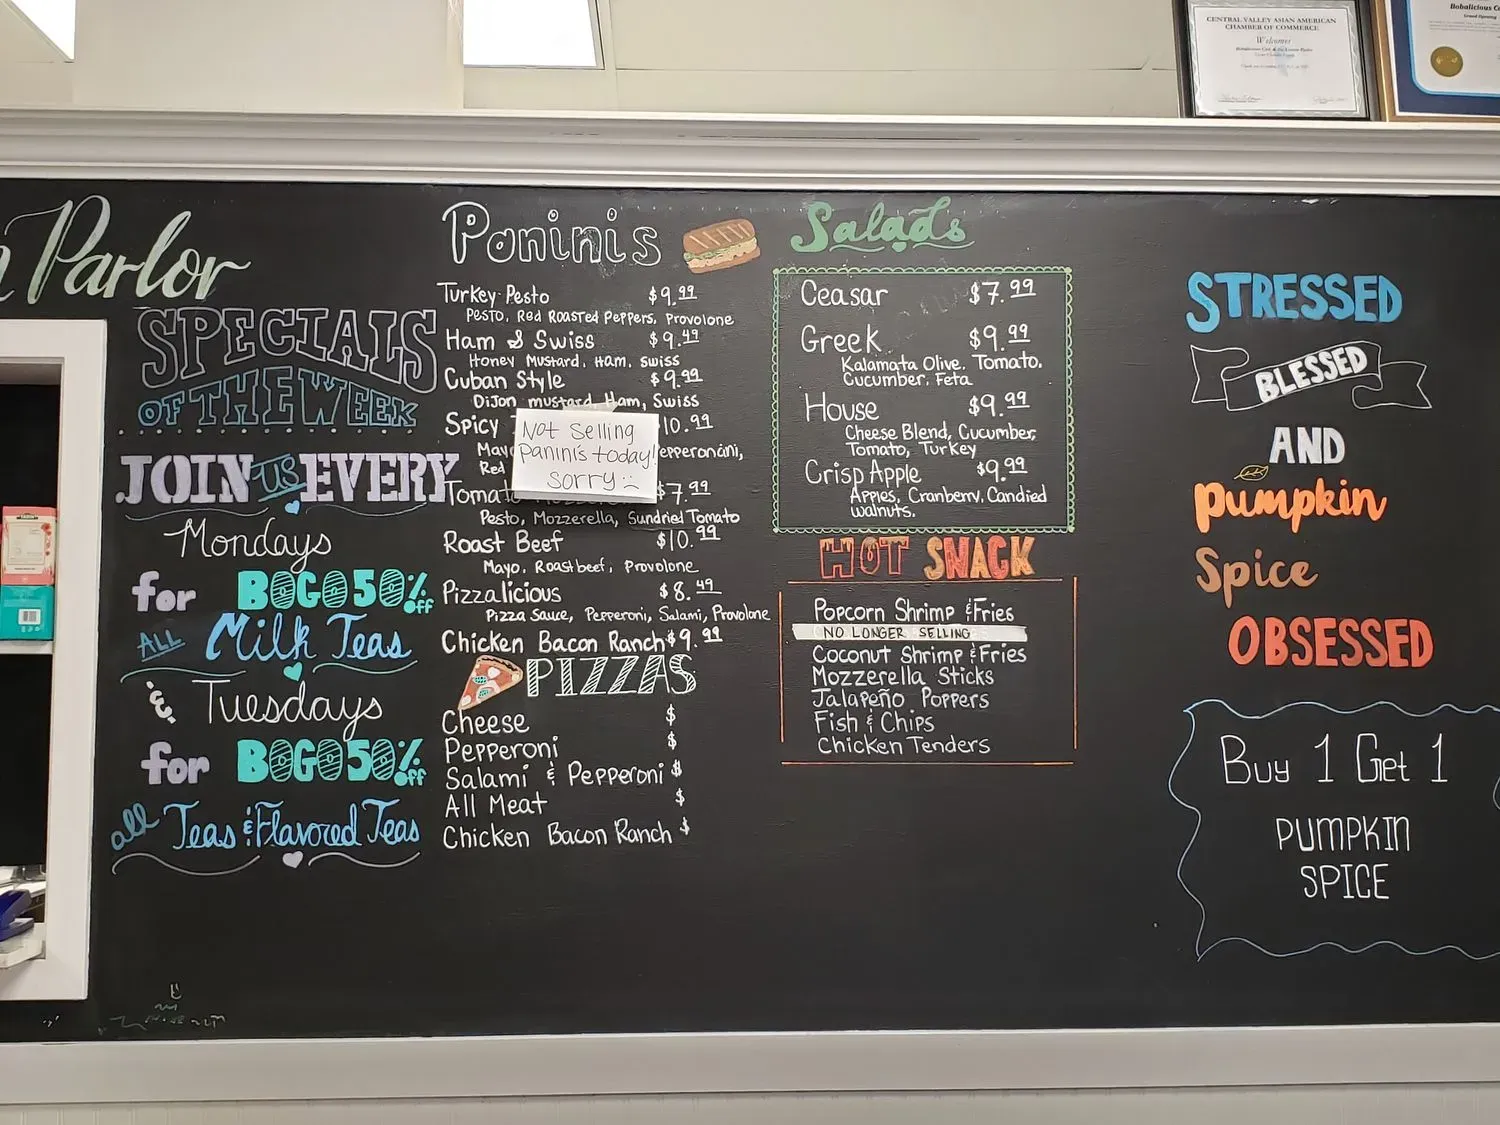 CENTRAL VALLEY ASIAN AMERICAN
CHAMBER OF COMMERCE
Welcomes
Bobalicious
Grand Opening
Parlor
SPECIALS
OF THE WEEK
JOIN US EVERY
Mondays
for BOGO 50% off
ALL Milk Teas
& Tuesdays
for BOGO 50% off
all Teas & Flavored Teas
Paninis
Turkey Pesto $9.99
Pesto, Red Roasted Peppers, Provolone
Ham & Swiss $9.49
Honey Mustard, Ham, Swiss
Cuban Style $9.99
Dijon mustard, Ham, Swiss
Spicy 10.99
Mayo epperoncini,
Red
Not Selling
Panini's today!
Sorry :(
Tomat $7.99
Pesto, Mozzerella, Sundried Tomato
Roast Beef $10.99
Mayo, Roast beef, Provolone
Pizzalicious $8.49
Pizza Sauce, Pepperoni, Salami, Provolone
Chicken Bacon Ranch $9.99
PIZZAS
Cheese $
Pepperoni $
Salami & Pepperoni $
All Meat $
Chicken Bacon Ranch $
Salads
Ceasar $7.99
Greek $9.99
Kalamata Olive, Tomato,
Cucumber, Feta
House $9.99
Cheese Blend, Cucumber,
Tomato, Turkey
Crisp Apple $9.99
Apples, Cranberry, Candied
walnuts.
HOT SNACK
Popcorn Shrimp & Fries
NO LONGER SELLING
Coconut Shrimp & Fries
Mozzerella Sticks
Jalapeño Poppers
Fish & Chips
Chicken Tenders
STRESSED
BLESSED
AND
Pumpkin
Spice
OBSESSED
Buy 1 Get 1
PUMPKIN
SPICE